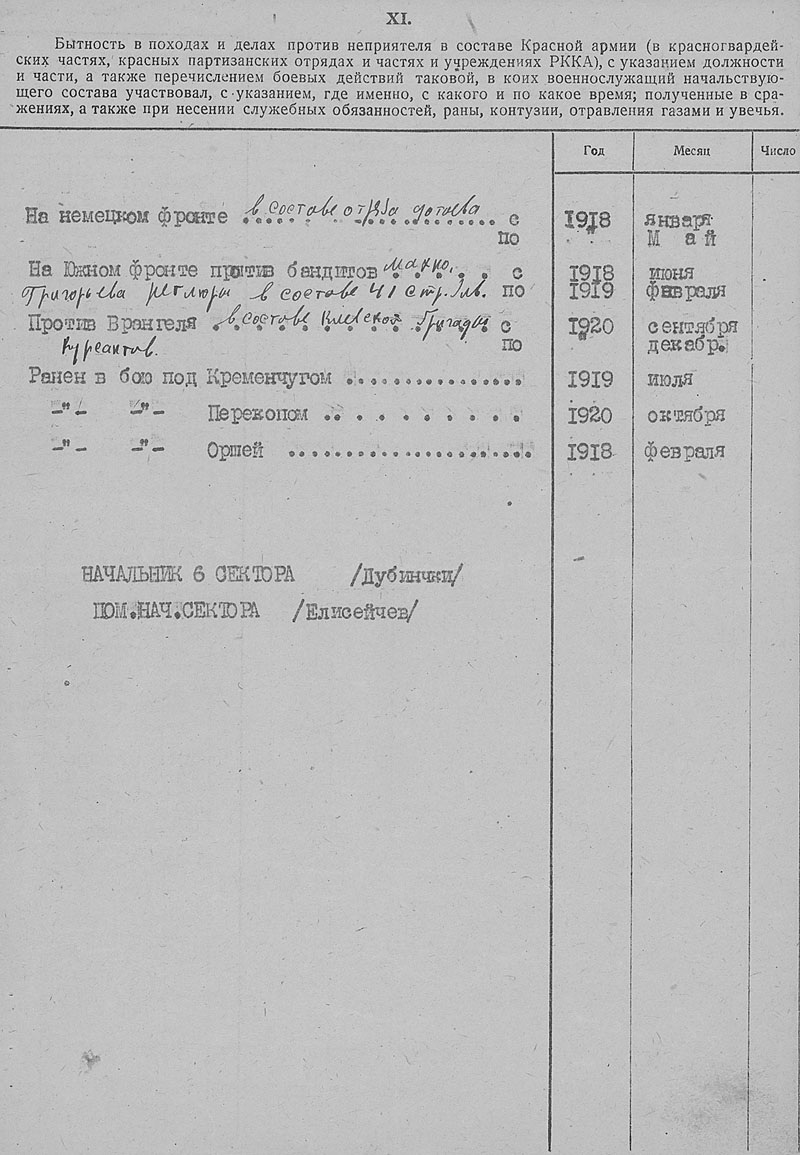 XI.
Бытность в походах и делах против неприятеля в составе Красной армии (в красногвардей-
ских частях, красных партизанских отрядах и частях и учреждениях РККА), с указанием должности
и части, а также перечислением боевых действий таковой, в коих военнослужащий начальствую-
щего состава участвовал, с указанием, где именно, с какого и по какое время; полученные в сра-
жениях, а также при несении служебных обязанностей, раны, контузии, отравления газами и увечья.
Год Месяц Число
На немецком фронте в составе с 1918 января
по Май
На Южном фронте против бандитов с 1918 июня
в составе 41 стр. по 1919 февраля
Против Врангеля в составе с 1920 сентября
курсантов. по декабр.
Ранен в бою под Кременчугом 1919 июля
-"- -"- Перекопом 1920 октября
-"- -"- Оршей 1918 февраля
НАЧАЛЬНИК 6 СЕКТОРА /Дубинчки/
ПОМ.НАЧ.СЕКТОРА /Елисейчев/